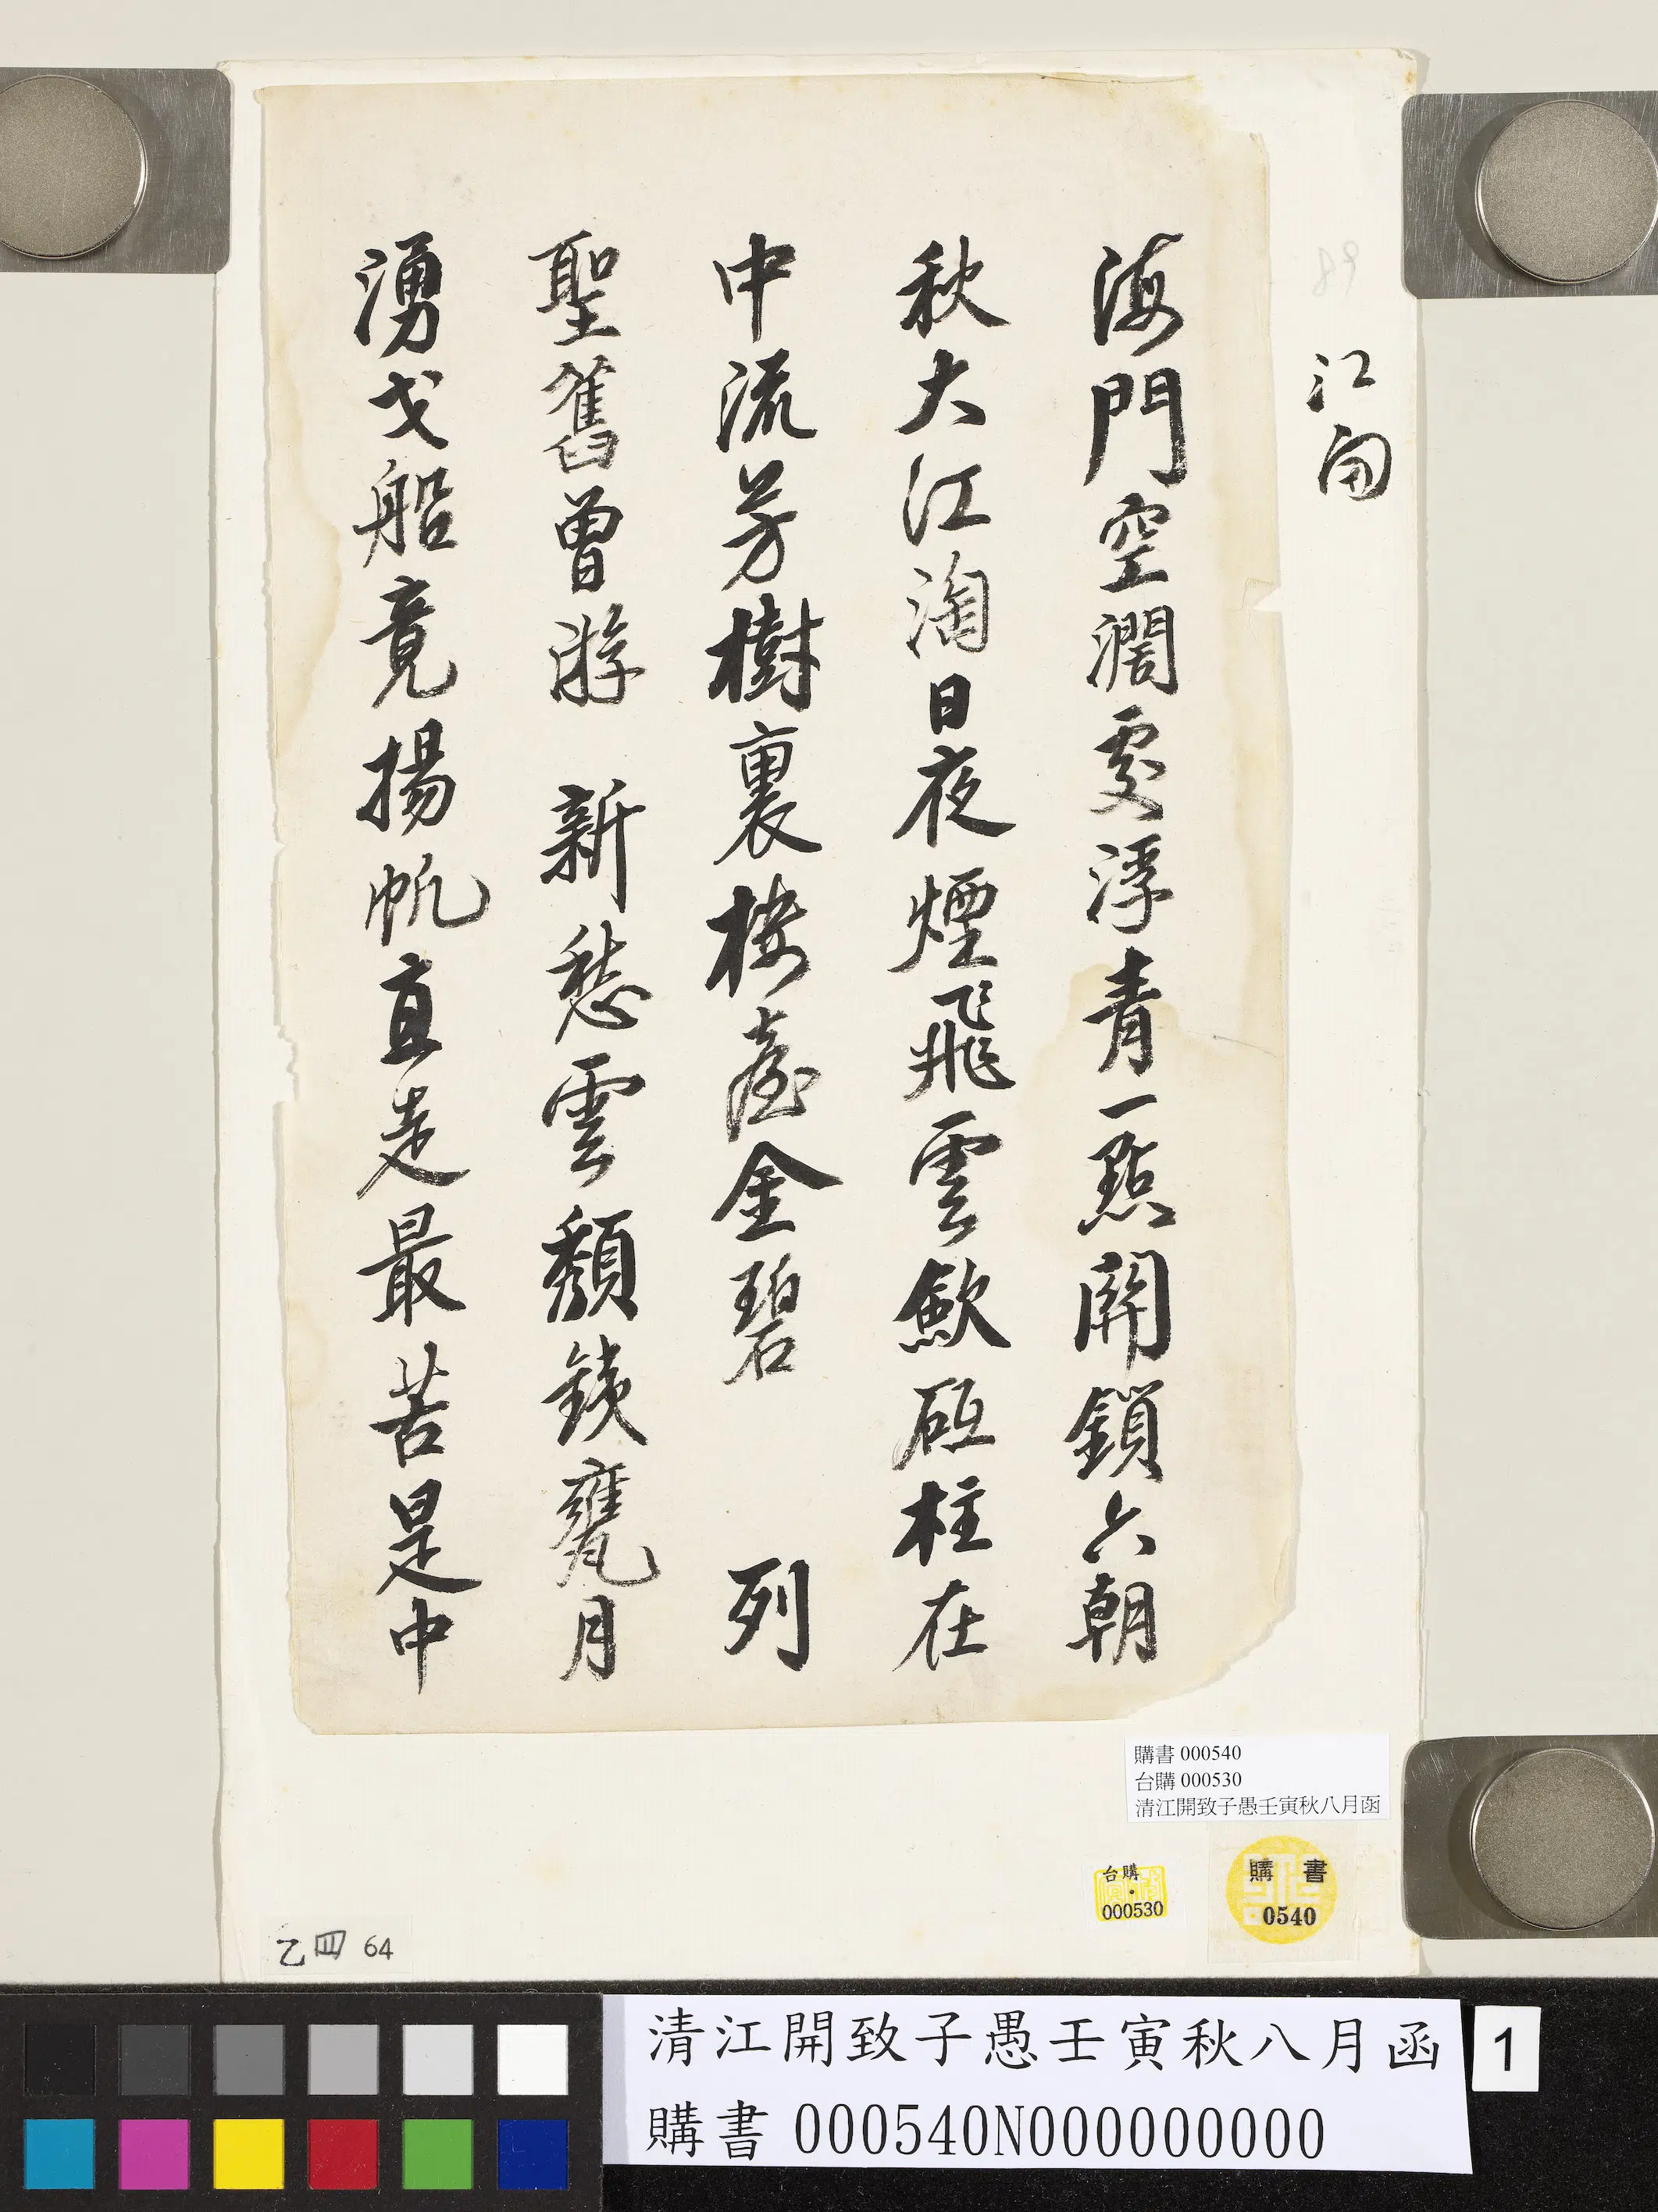 江開
海門空濶處浮青一點開鎖六朝
秋大江淘日夜煙飛雲歛砥柱在
中流芳樹裏樓臺金碧 列
聖舊曾游 新愁雲頹鐵甕月
湧戈船竟揚帆直走最苦是中
89
購書 000540
台購 000530
清江開致子愚壬寅秋八月函
台購
000530
購書
0540
乙四 64
清江開致子愚壬寅秋八月函
購書 000540N000000000
1